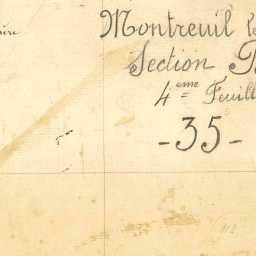 Montreuil
Section
4eme Feuill
-35-